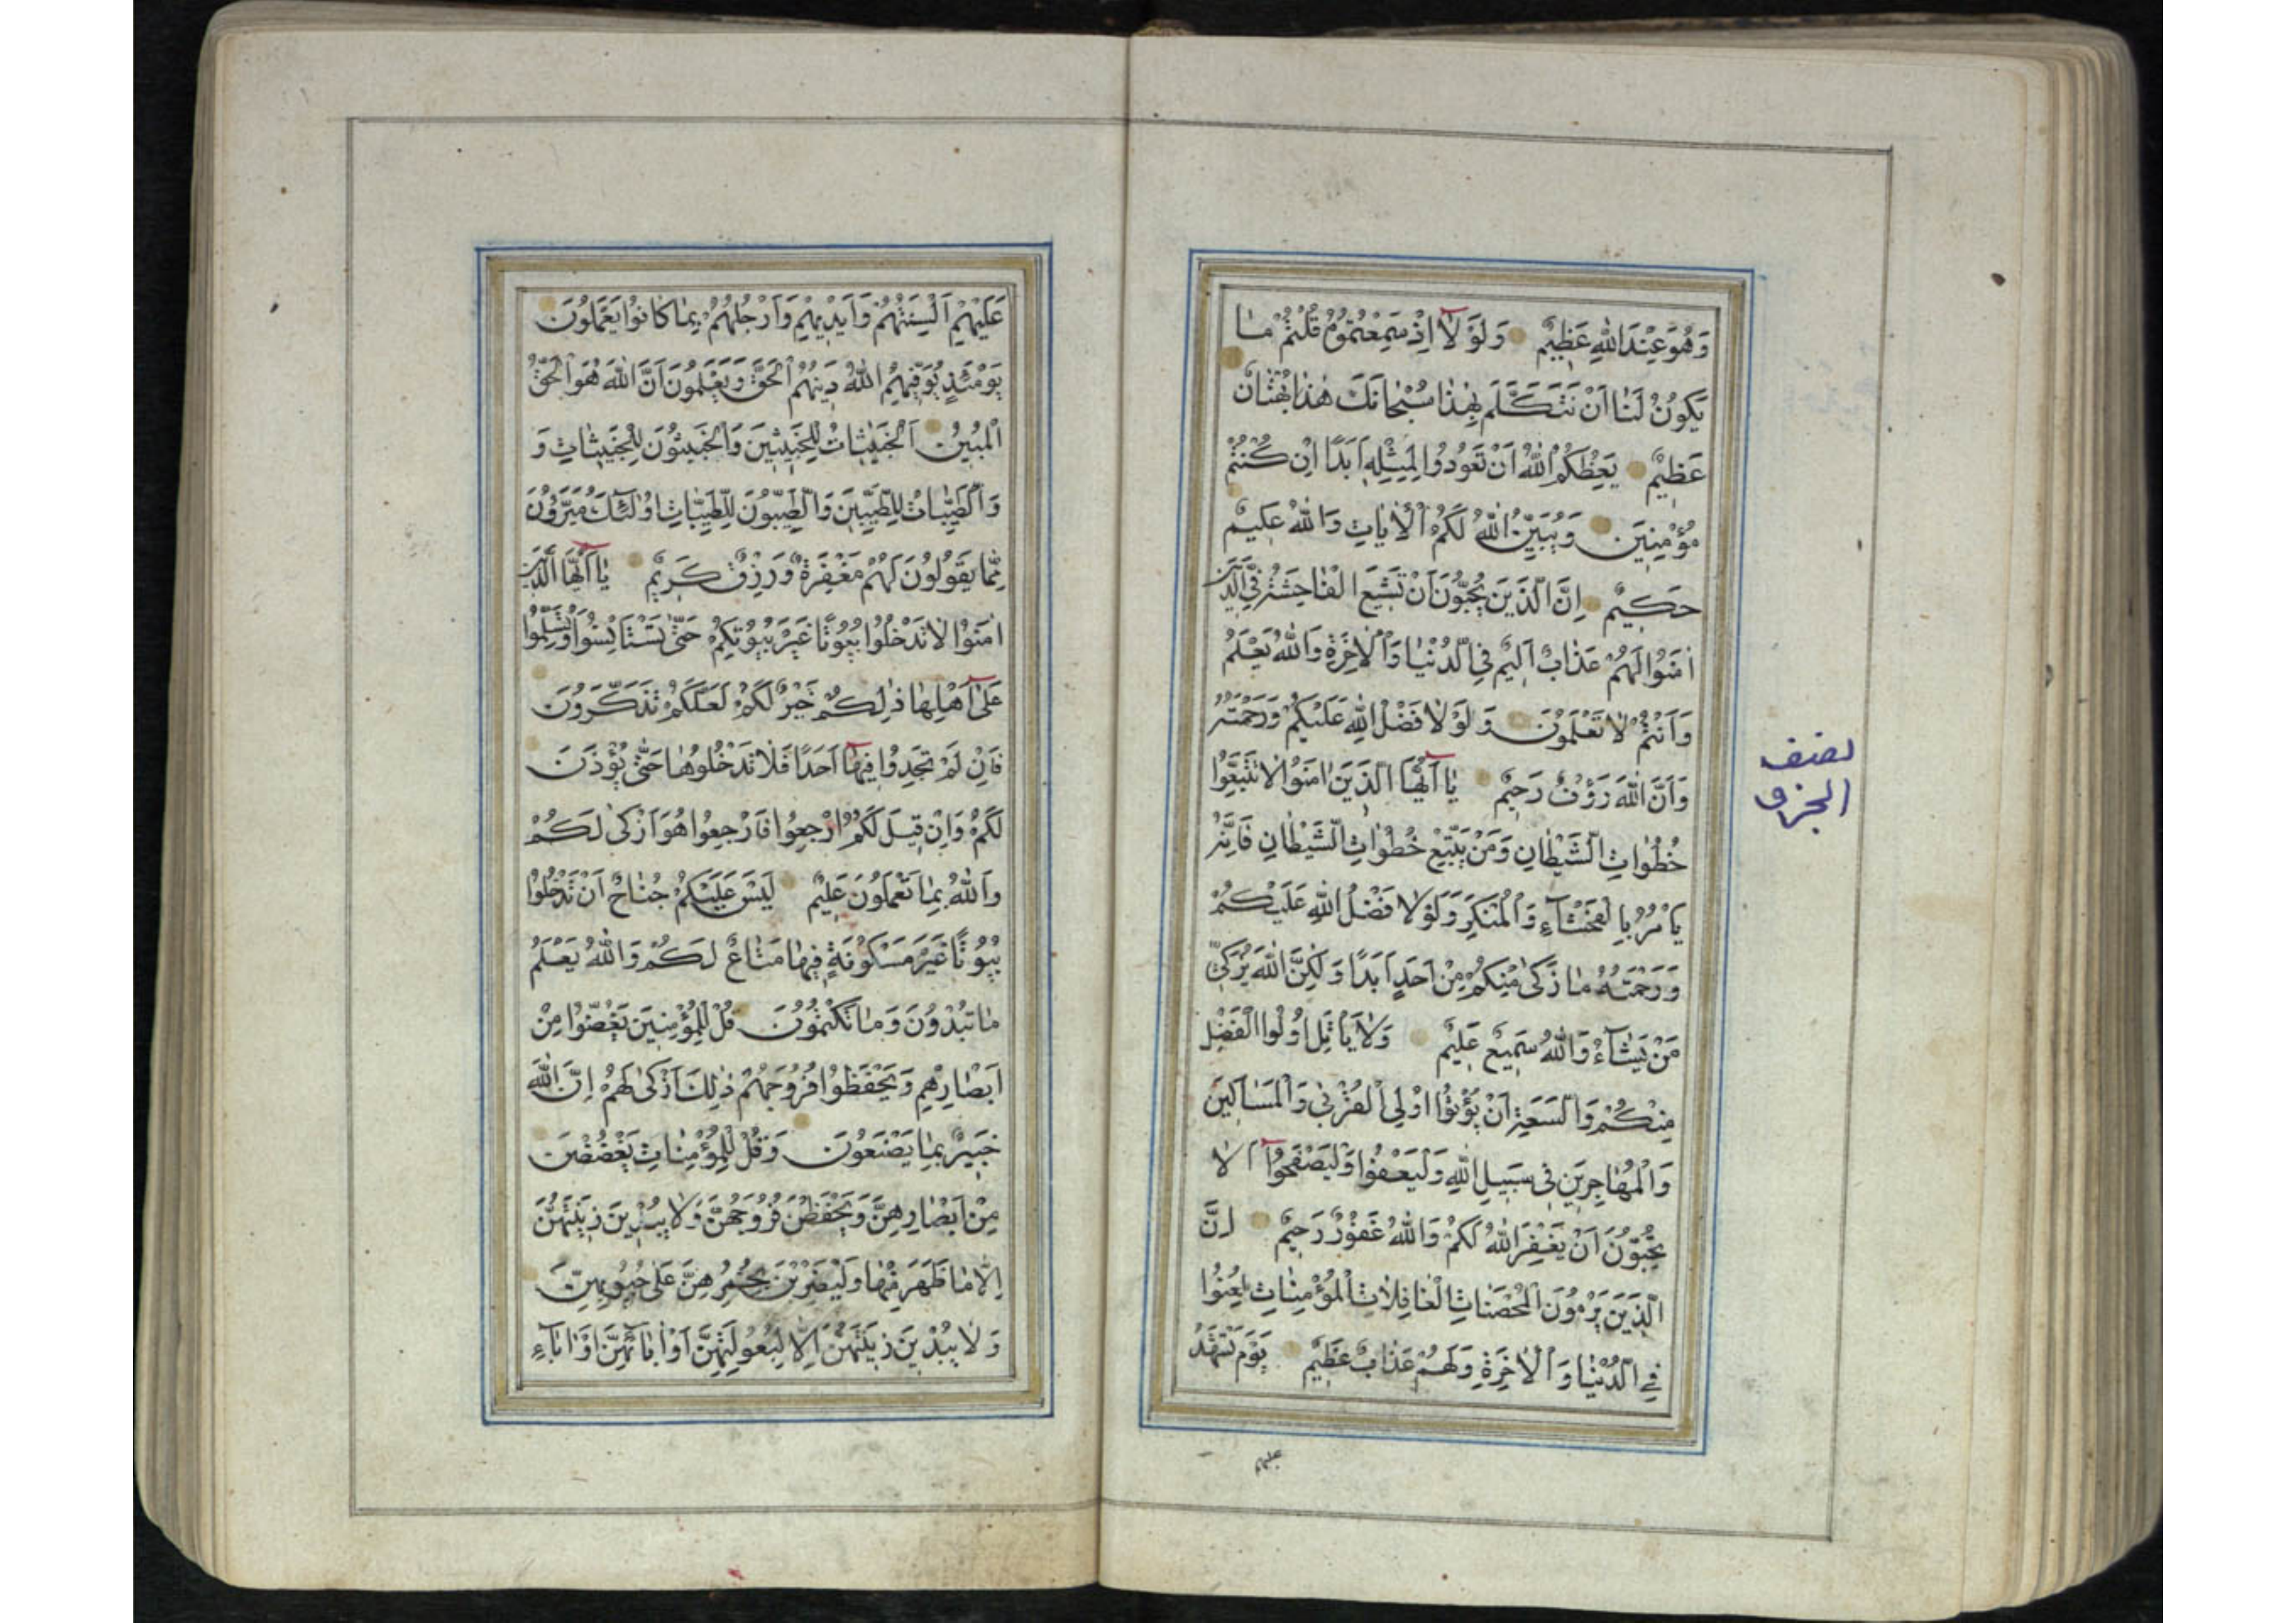 وَهُوَ عِنْدَ اللّٰهِ عَظِيمٌ وَلَوْ لَا اِذْ سَمِعْتُمُوهُ قُلْتُمْ مَا
يَكُونُ لَنَا اَنْ نَتَكَلَّمَ بِهٰذَا سُبْحَانَكَ هٰذَا بُهْتَانٌ
عَظِيمٌ يَعِظُكُمُ اللّٰهُ اَنْ تَعُودُوا لِمِثْلِهِ اَبَدًا اِنْ كُنْتُمْ
مُؤْمِنِينَ وَيُبَيِّنُ اللّٰهُ لَكُمُ الْاٰيَاتِ وَاللّٰهُ عَلِيمٌ
حَكِيمٌ اِنَّ الَّذِينَ يُحِبُّونَ اَنْ تَشِيعَ الْفَاحِشَةُ فِي الَّذِينَ
اٰمَنُوا لَهُمْ عَذَابٌ اَلِيمٌ فِي الدُّنْيَا وَالْاٰخِرَةِ وَاللّٰهُ يَعْلَمُ
وَاَنْتُمْ لَا تَعْلَمُونَ وَلَوْ لَا فَضْلُ اللّٰهِ عَلَيْكُمْ وَرَحْمَتُهُ
وَاَنَّ اللّٰهَ رَؤُفٌ رَحِيمٌ يَا اَيُّهَا الَّذِينَ اٰمَنُوا لَا تَتَّبِعُوا
خُطُوَاتِ الشَّيْطَانِ وَمَنْ يَتَّبِعْ خُطُوَاتِ الشَّيْطَانِ فَاِنَّهُ
يَاْمُرُ بِالْفَحْشَآءِ وَالْمُنْكَرِ وَلَوْ لَا فَضْلُ اللّٰهِ عَلَيْكُمْ
وَرَحْمَتُهُ مَا زَكٰى مِنْكُمْ مِنْ اَحَدٍ اَبَدًا وَلٰكِنَّ اللّٰهَ يُزَكِّي
مَنْ يَشَآءُ وَاللّٰهُ سَمِيعٌ عَلِيمٌ وَلَا يَاْتَلِ اُولُوا الْفَضْلِ
مِنْكُمْ وَالسَّعَةِ اَنْ يُؤْتُوا اُولِي الْقُرْبٰى وَالْمَسَاكِينَ
وَالْمُهَاجِرِينَ فِي سَبِيلِ اللّٰهِ وَلْيَعْفُوا وَلْيَصْفَحُوا اَلَا
تُحِبُّونَ اَنْ يَغْفِرَ اللّٰهُ لَكُمْ وَاللّٰهُ غَفُورٌ رَحِيمٌ اِنَّ
الَّذِينَ يَرْمُونَ الْمُحْصَنَاتِ الْغَافِلَاتِ الْمُؤْمِنَاتِ لُعِنُوا
فِي الدُّنْيَا وَالْاٰخِرَةِ وَلَهُمْ عَذَابٌ عَظِيمٌ يَوْمَ تَشْهَدُ
عليهم
نصف
الجزو
عَلَيْهِمْ اَلْسِنَتُهُمْ وَاَيْدِيهِمْ وَاَرْجُلُهُمْ بِمَا كَانُوا يَعْمَلُونَ
يَوْمَئِذٍ يُوَفِّيهِمُ اللّٰهُ دِينَهُمُ الْحَقَّ وَيَعْلَمُونَ اَنَّ اللّٰهَ هُوَ الْحَقُّ
الْمُبِينُ اَلْخَبِيثَاتُ لِلْخَبِيثِينَ وَالْخَبِيثُونَ لِلْخَبِيثَاتِ وَ
وَالطَّيِّبَاتُ لِلطَّيِّبِينَ وَالطَّيِّبُونَ لِلطَّيِّبَاتِ اُولٰئِكَ مُبَرَّؤُنَ
مِمَّا يَقُولُونَ لَهُمْ مَغْفِرَةٌ وَرِزْقٌ كَرِيمٌ يَا اَيُّهَا الَّذِينَ
اٰمَنُوا لَا تَدْخُلُوا بُيُوتًا غَيْرَ بُيُوتِكُمْ حَتّٰى تَسْتَاْنِسُوا وَتُسَلِّمُوا
عَلٰى اَهْلِهَا ذٰلِكُمْ خَيْرٌ لَكُمْ لَعَلَّكُمْ تَذَكَّرُونَ
فَاِنْ لَمْ تَجِدُوا فِيهَا اَحَدًا فَلَا تَدْخُلُوهَا حَتّٰى يُؤْذَنَ
لَكُمْ وَاِنْ قِيلَ لَكُمُ ارْجِعُوا فَارْجِعُوا هُوَ اَزْكٰى لَكُمْ
وَاللّٰهُ بِمَا تَعْمَلُونَ عَلِيمٌ لَيْسَ عَلَيْكُمْ جُنَاحٌ اَنْ تَدْخُلُوا
بُيُوتًا غَيْرَ مَسْكُونَةٍ فِيهَا مَتَاعٌ لَكُمْ وَاللّٰهُ يَعْلَمُ
مَا تُبْدُونَ وَمَا تَكْتُمُونَ قُلْ لِلْمُؤْمِنِينَ يَغُضُّوا مِنْ
اَبْصَارِهِمْ وَيَحْفَظُوا فُرُوجَهُمْ ذٰلِكَ اَزْكٰى لَهُمْ اِنَّ اللّٰهَ
خَبِيرٌ بِمَا يَصْنَعُونَ وَقُلْ لِلْمُؤْمِنَاتِ يَغْضُضْنَ
مِنْ اَبْصَارِهِنَّ وَيَحْفَظْنَ فُرُوجَهُنَّ وَلَا يُبْدِينَ زِينَتَهُنَّ
اِلَّا مَا ظَهَرَ مِنْهَا وَلْيَضْرِبْنَ بِخُمُرِهِنَّ عَلٰى جُيُوبِهِنَّ
وَلَا يُبْدِينَ زِينَتَهُنَّ اِلَّا لِبُعُولَتِهِنَّ اَوْ اٰبَآئِهِنَّ اَوْ اٰبَآءِ